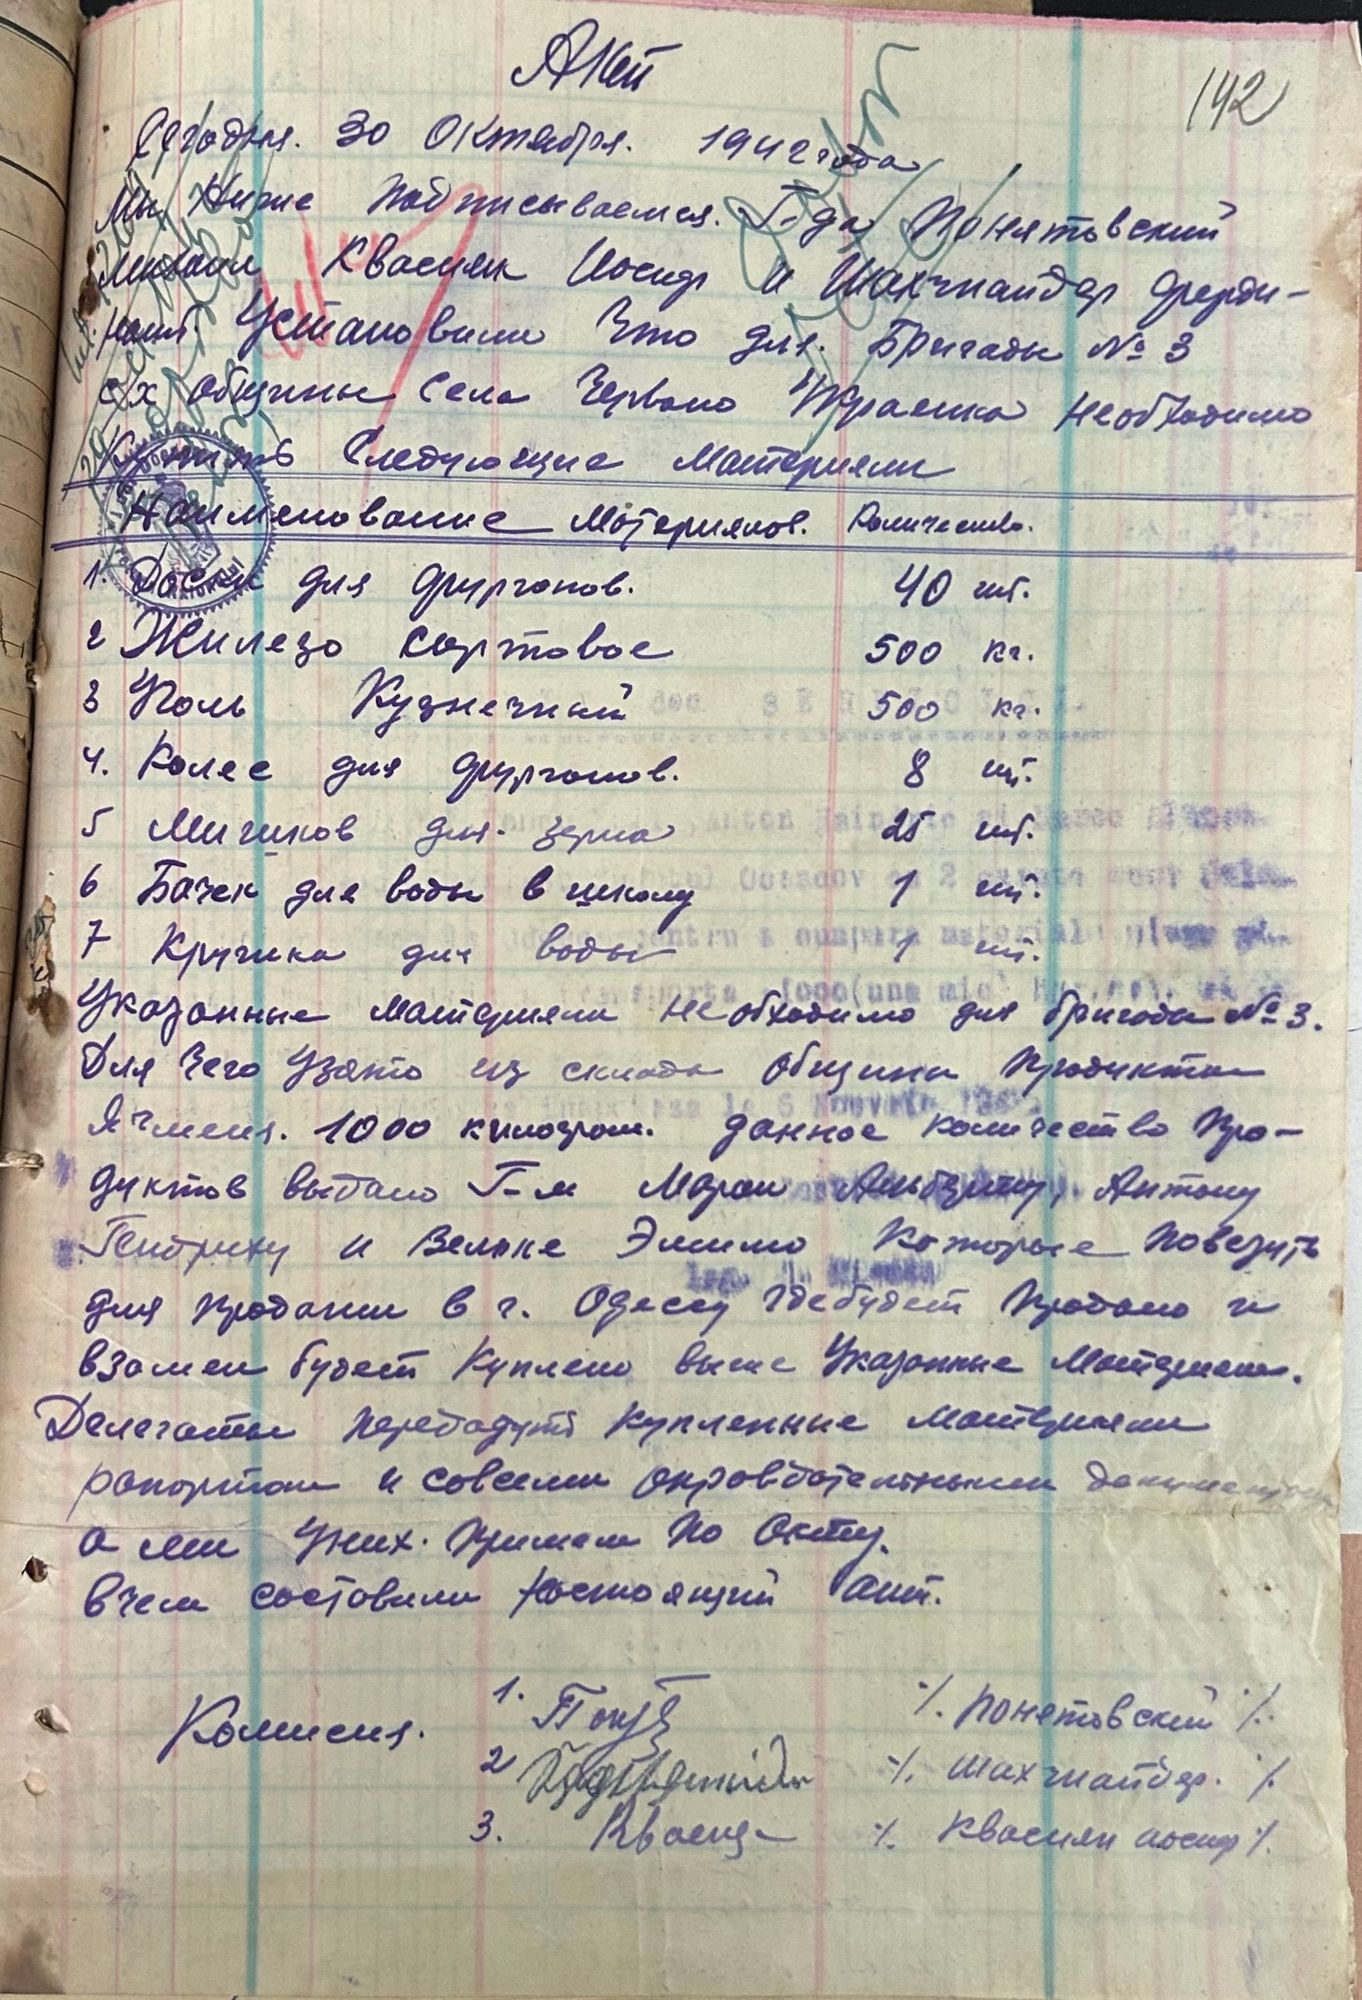 142
Акт
Сегодня. 30 Октября. 1942 года
Мы Ниже Подписываемся. Г-да Понятовский
Михаил Квасняк Иосиф и Шахчнайдер Ферди-
нант. Установили Что для. Бригады № 3
с/х общины Села Червона Украенка Необходимо
Следующие Материяли
Наименование Материялов. Количество.
1. Доски для фургонов. 40 шт.
2 Жилезо сортовое 500 кг.
3 Уголь Кузнечний 500 кг.
4. Колес для фургонов. 8 шт.
5 Мишков для. зерна 25 шт.
6 Бачек для воды в школу 1 шт.
7 Кружка для воды 1 шт.
Указанные Материяли Необходимо для бригады № 3.
Для Чего Узято из склада общины Продукты
Ячменя. 1000 килограм. данное количество Про-
дуктов выдано Г-м Марви Альберту, Антону
Гендриху и Вельке Эмилю Которые Повезуть
для продажи в г. Одессу где будет Продано и
взамен будет Куплено выше Указанные Материяли.
Делегаты передадуть купленные материяли
рапортом и совсеми оправдательными документами
а ми Уних. Примем По Акту.
вчем составили Настоящий акт.
Комисия. 1. ./. Понятовский ./.
2 ./. Шахчнайдер. ./.
3. Квасня ./. Квасняк иосиф ./.